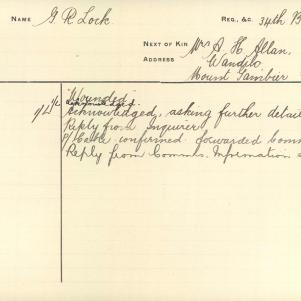 NAME G R Lock.
REG., &C. 34th B
NEXT OF KIN Mrs A. H. Allan,
ADDRESS Wandilo,
Mount Gambier
"Wounded".
Acknowledged, asking further detail
Reply from Inquirer
Cable confirmed forwarded Comm
Reply from Comms. Information